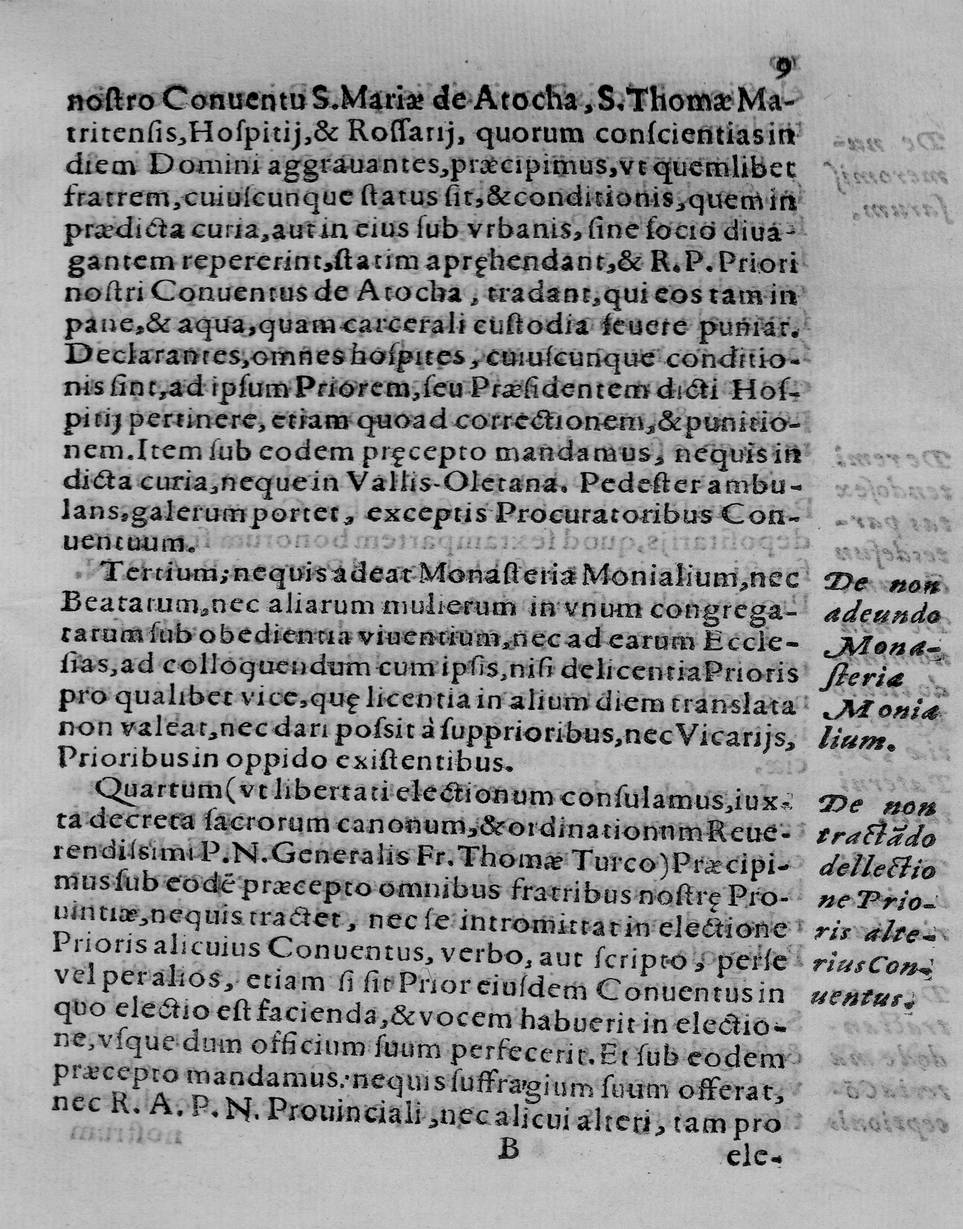 9
noſtro Conuentu S. Mariæ de Atocha, S. Thomæ Ma-
tritenſis, Hoſpitij, & Roſſarij, quorum conſcientias in
diem Domini aggrauantes, præcipimus, vt quemlibet
fratrem, cuiuſcunque ſtatus ſit, & conditionis, quem in
prædicta curia, aut in eius ſub vrbanis, ſine ſocio diua-
gantem repererint, ſtatim apręhendant, & R. P. Priori
noſtri Conuentus de Atocha, tradant, qui eos tam in
pane, & aqua, quam carcerali cuſtodia ſeuere puniat.
Declarantes, omnes hoſpites, cuiuſcunque conditio-
nis ſint, ad ipſum Priorem, ſeu Præſidentem dicti Hoſ-
pitij pertinere, etiam quoad correctionem, & punitio-
nem. Item ſub eodem pręcepto mandamus, nequis in
dicta curia, neque in Vallis-Oletana. Pedeſter ambu-
lans, galerum portet, exceptis Procuratoribus Con-
uentuum.
Tertium; nequis adeat Monaſteria Monialium, nec
Beatarum, nec aliarum mulierum in vnum congrega-
tarum ſub obedientia viuentium, nec ad earum Eccle-
ſias, ad colloquendum cum ipſis, niſi de licentia Prioris
pro qualibet vice, quę licentia in alium diem translata
non valeat, nec dari poſsit à ſupprioribus, nec Vicarijs,
Prioribus in oppido exiſtentibus.
De non
adeundo
Mona-
ſteria
Monia
lium.
Quartum (vt libertati electionum conſulamus, iux-
ta decreta ſacrorum canonum, & ordinationum Reue-
rendiſsimi P. N. Generalis Fr. Thomæ Turco) Præcipi-
mus ſub eodē præcepto omnibus fratribus noſtrę Pro-
uintiæ, nequis tractet, nec ſe intromittat in electione
Prioris alicuius Conuentus, verbo, aut ſcripto, per ſe
vel per alios, etiam ſi ſit Prior eiuſdem Conuentus in
quo electio eſt facienda, & vocem habuerit in electio-
ne, vſque dum officium ſuum perfecerit. Et ſub eodem
præcepto mandamus: nequis ſuffragium ſuum offerat,
nec R. A. P. N. Prouinciali, nec alicui alteri, tam pro
De non
tractādo
dellectio
ne Prio-
ris alte-
rius Con-
uentus.
B
ele-